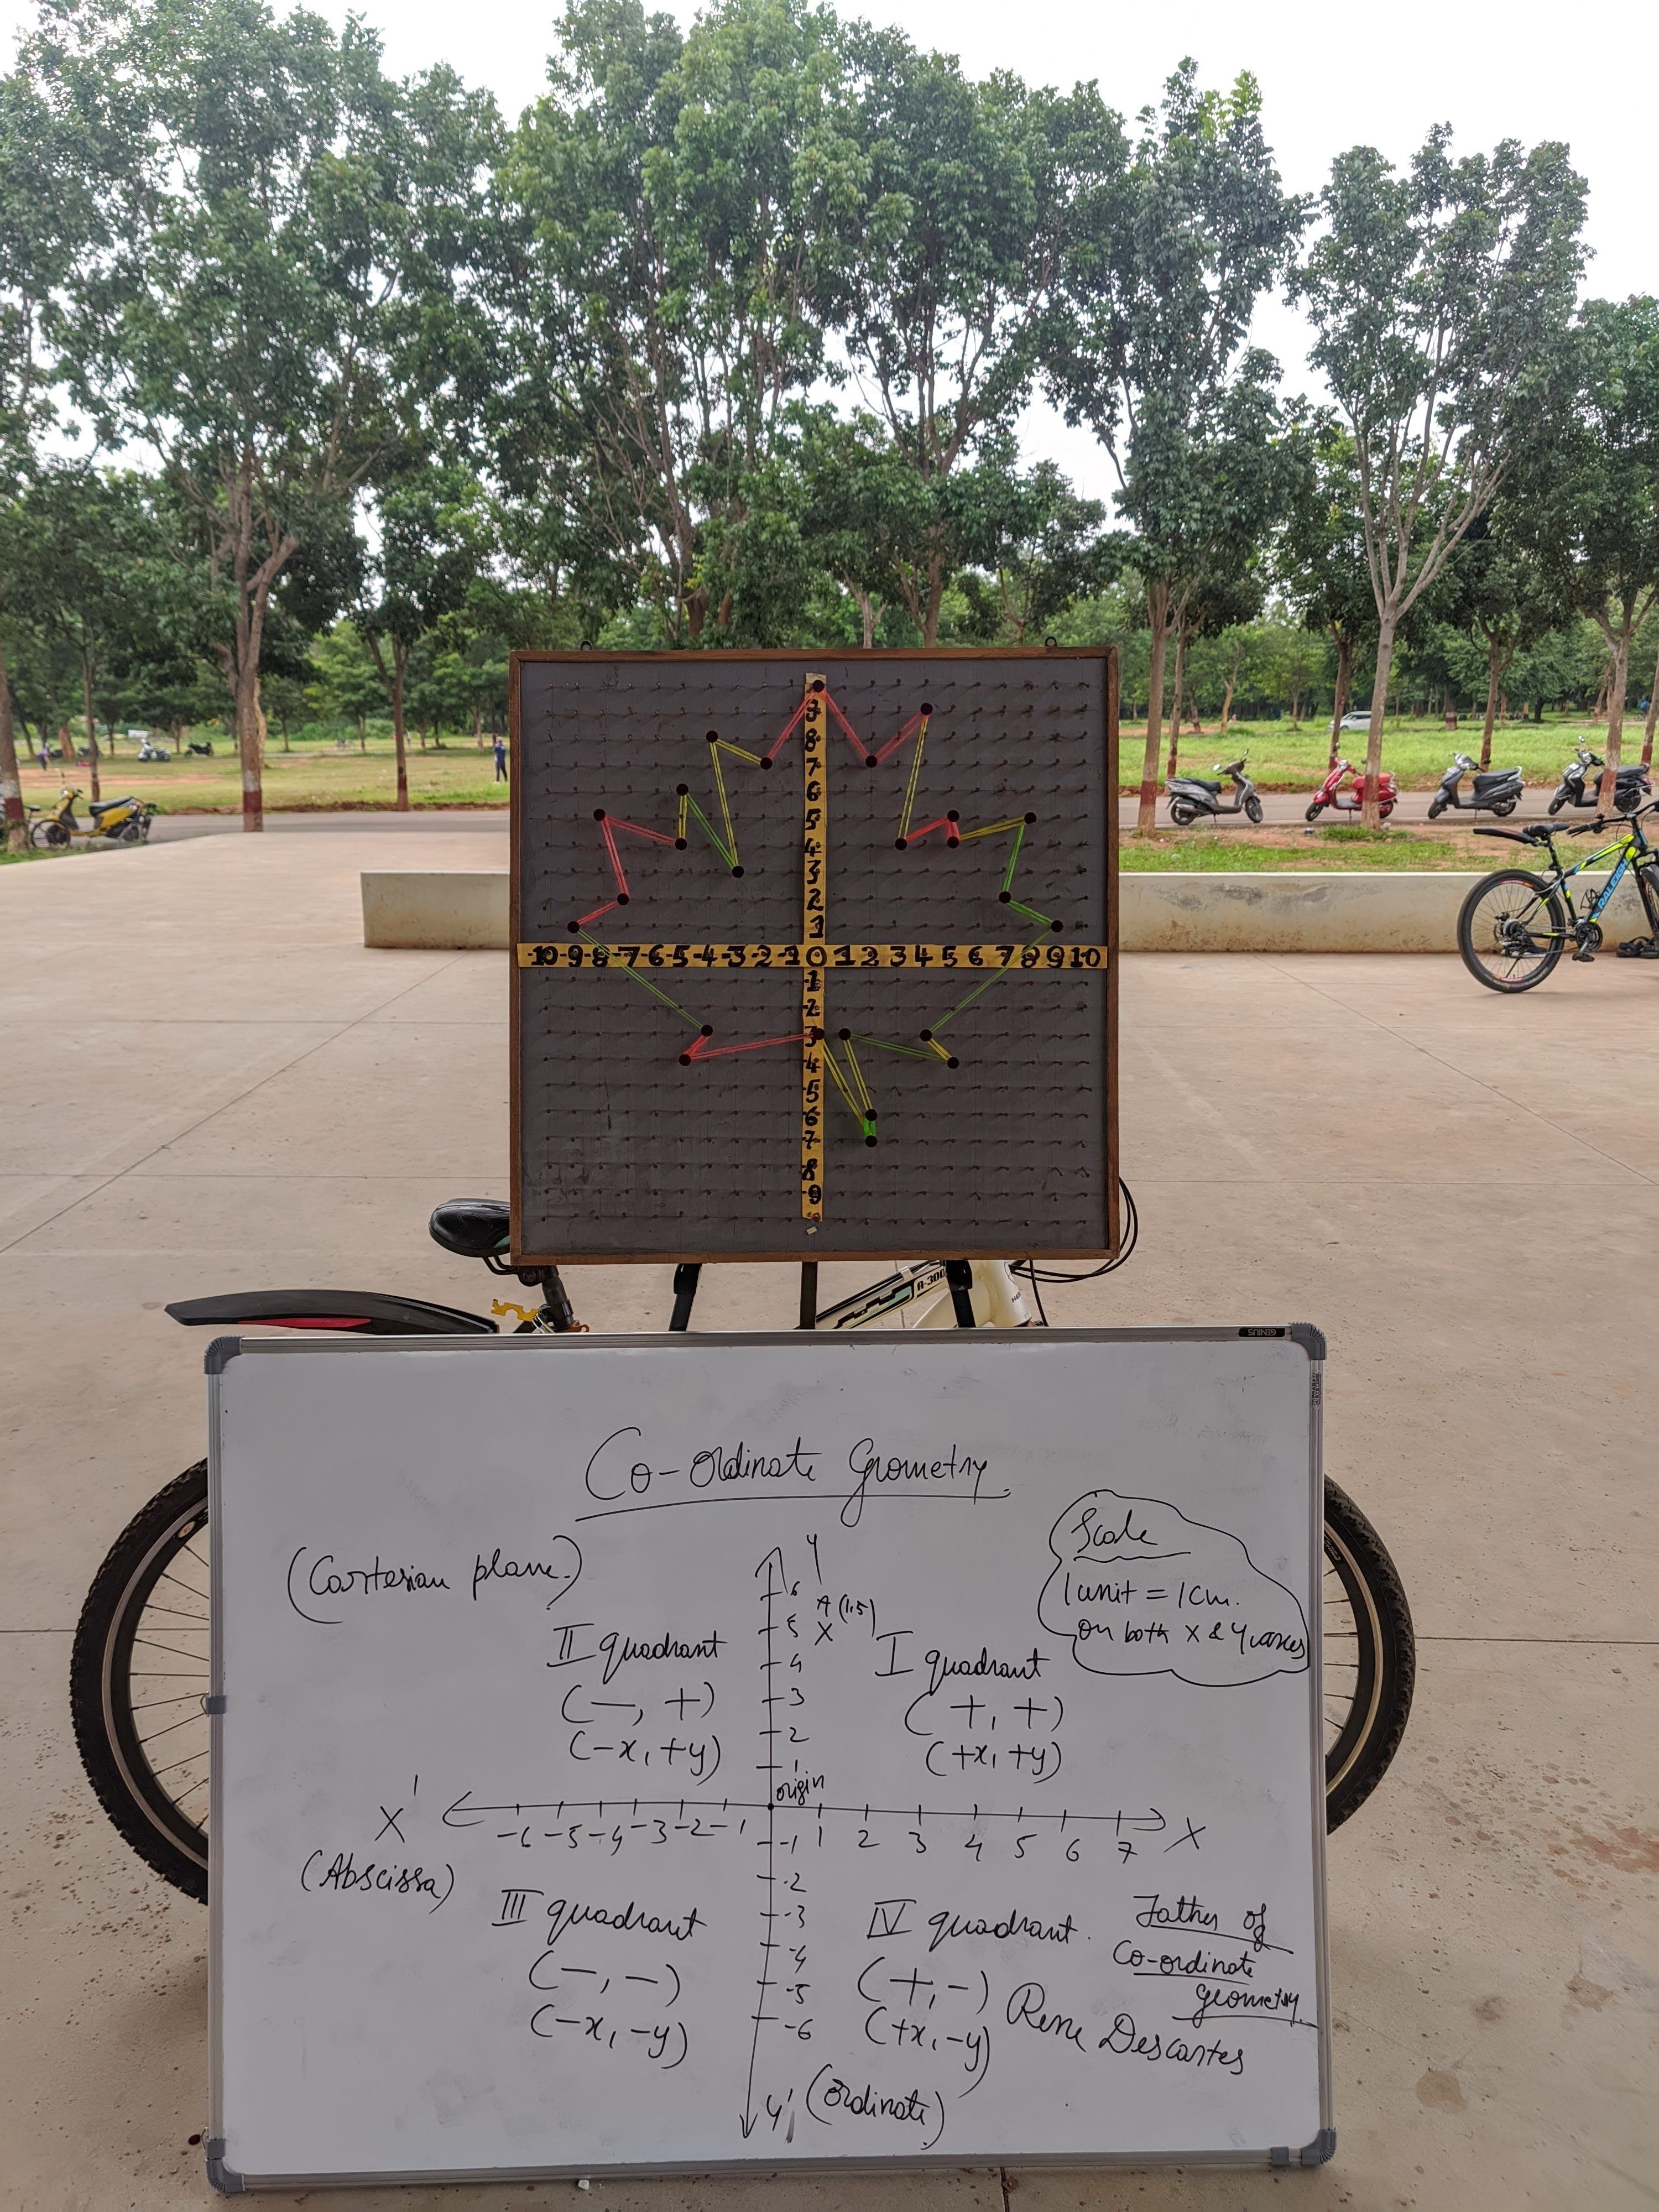 9
8
7
6
5
4
3
2
1
-10 -9 -8 -7 -6 -5 -4 -3 -2 -1 0 1 2 3 4 5 6 7 8 9 10
-1
-2
3
-4
5
6
-7
8
-9
A-300
RALEIGH
GENIUS
Co-ordinate Geometry
(Cartesian plane.)
Scale
1 unit = 1 cm.
on both X & Y axes
Y
6
A (1,5)
5 X
4
3
2
1
II quadrant
(-, +)
(-x, +y)
I quadrant
(+, +)
(+x, +y)
origin
X'
-6 -5 -4 -3 -2 -1 -1 1 2 3 4 5 6 7 X
(Abscissa)
-2
-3
-4
-5
-6
III quadrant
(-, -)
(-x, -y)
IV quadrant.
(+, -)
(+x, -y)
Father of
Co-ordinate
geometry.
Rene Descartes
Y' (Ordinate)